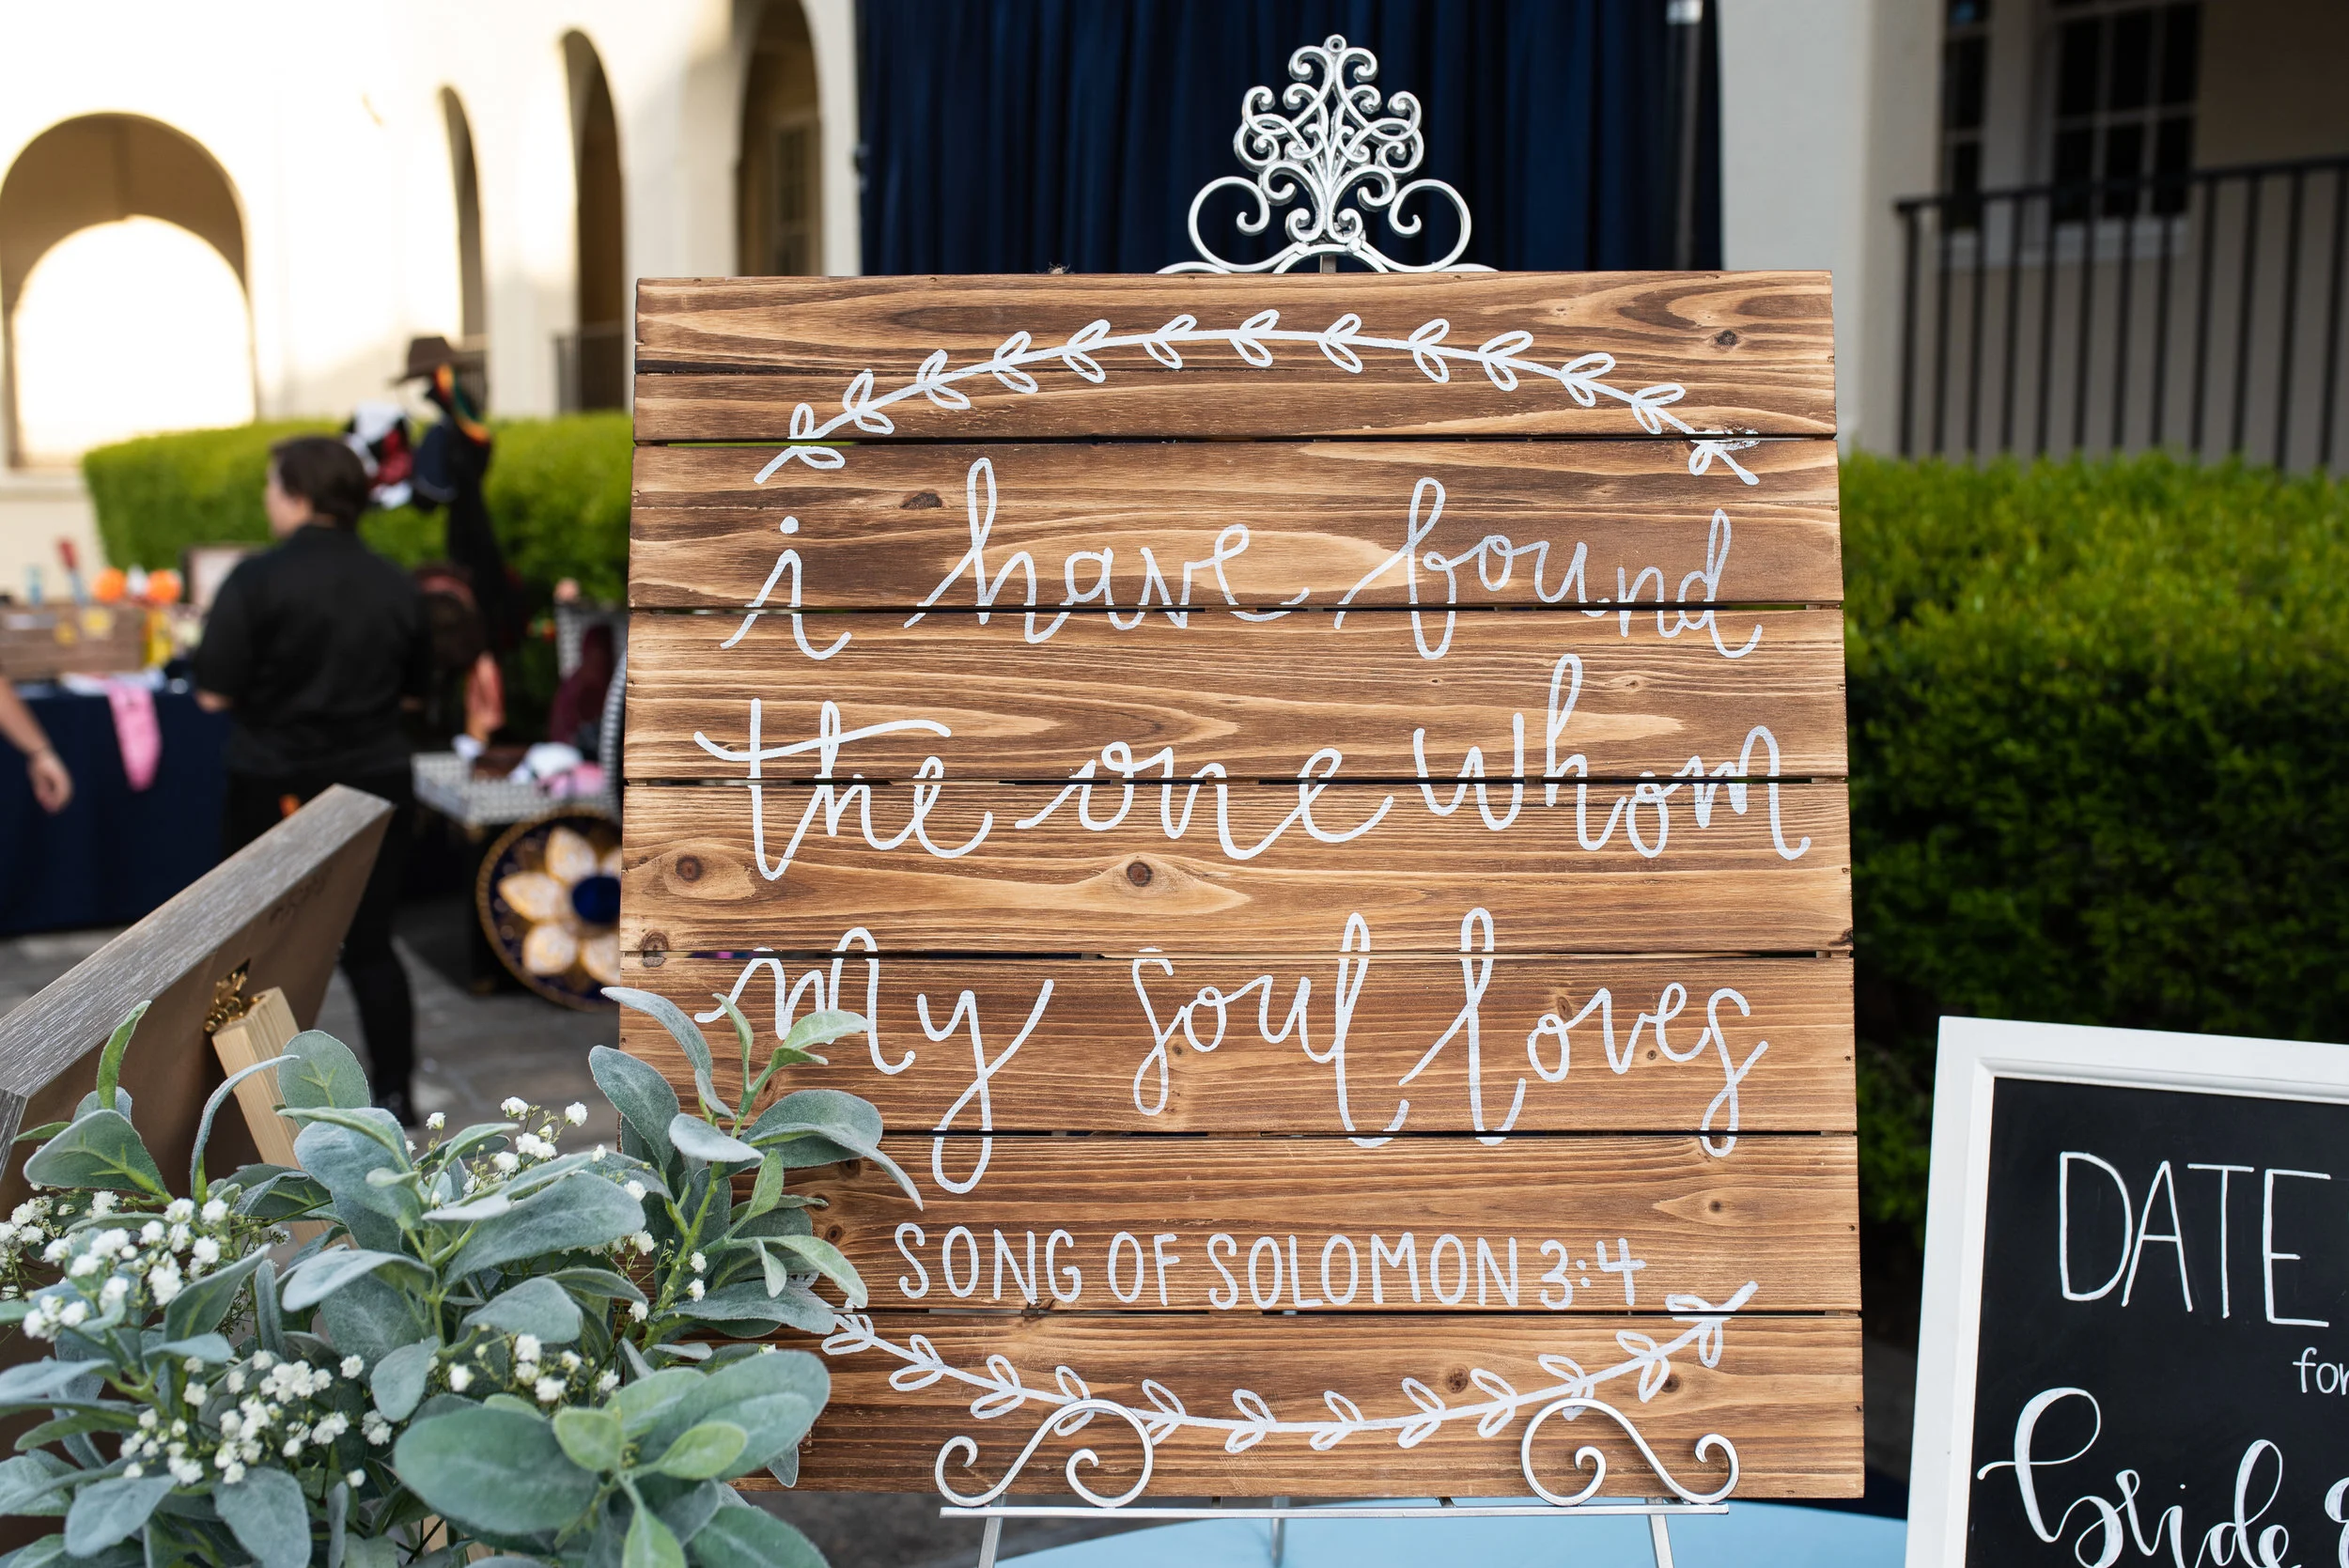 i have found
the one whom
my soul loves
SONG OF SOLOMON 3:4
DATE
for
bride &